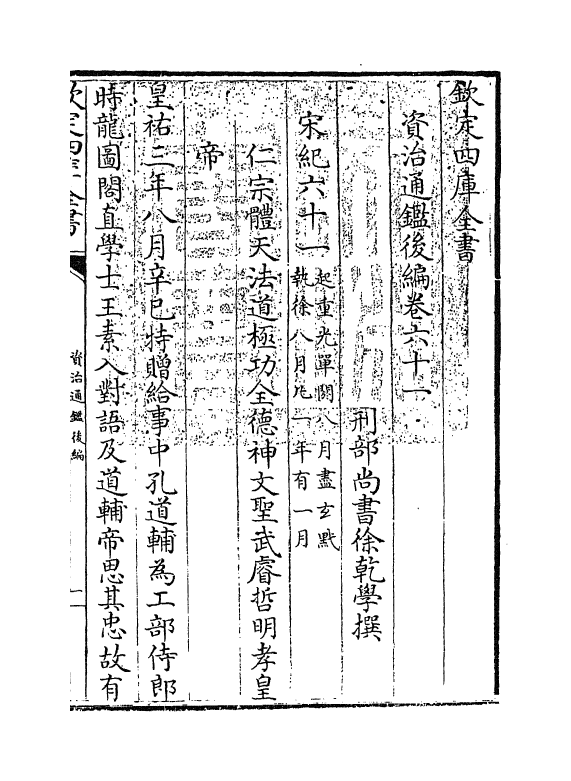 欽定四庫全書
資治通鑑後編卷六十一
刑部尚書徐乾學撰
宋紀六十一起重光單閼八月盡玄黓
執徐八月凡一年有一月
仁宗體天法道極功全德神文聖武睿哲明孝皇
帝
皇祐三年八月辛巳特贈給事中孔道輔為工部侍郎
時龍圖閣直學士王素入對語及道輔帝思其忠故有
欽定四庫全書
資治通鑑後編